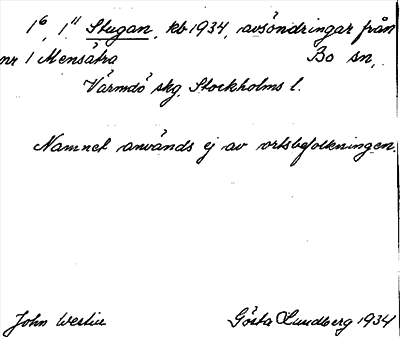 1⁶, 1¹¹ Stugan, kb 1934, avsöndringar från
nr 1 Mensätra Bo sn,
Värmdö skg. Stockholms l.
Namnet används ej av ortsbefolkningen.
John Westin Gösta Lundberg 1934